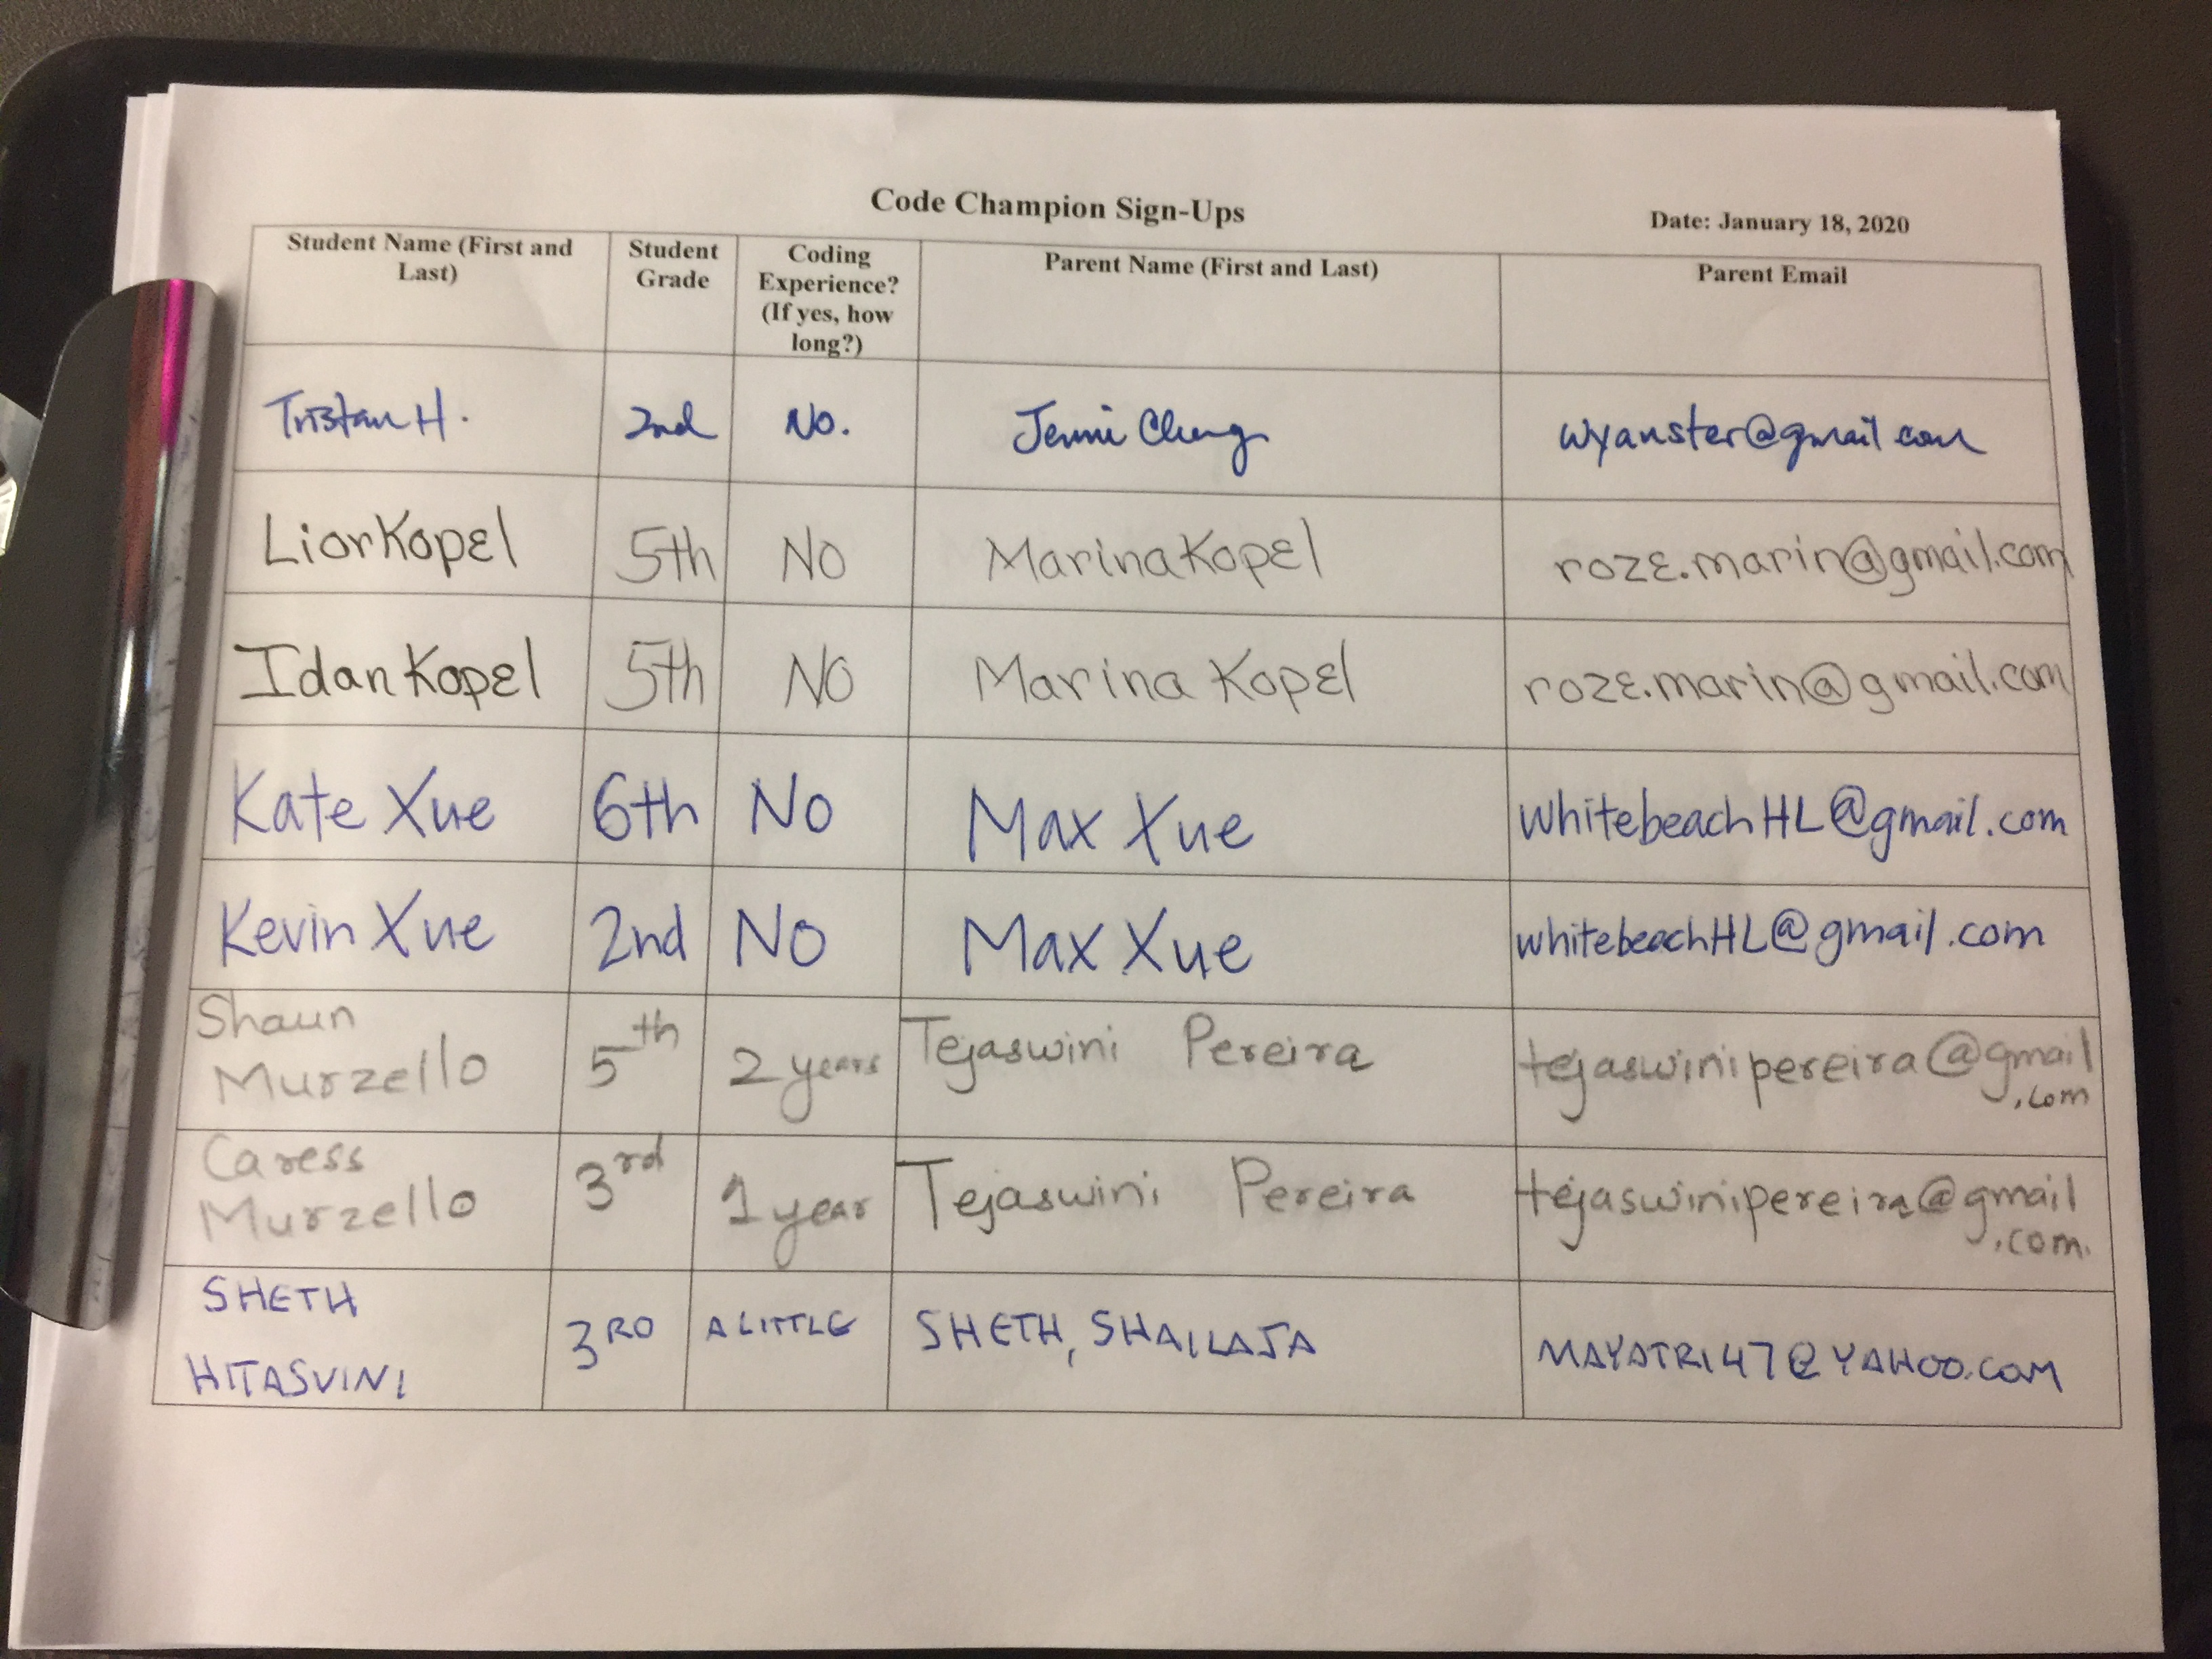 Code Champion Sign-Ups
Date: January 18, 2020
Student Name (First and Last)
Student Grade
Coding Experience? (If yes, how long?)
Parent Name (First and Last)
Parent Email
Tristan H. 2nd No. Jenni Chong wyanster@gmail.com
Lior Kopel 5th No Marina Kopel roze.marin@gmail.com
Idan Kopel 5th No Marina Kopel roze.marin@gmail.com
Kate Xue 6th No Max Xue whitebeachHL@gmail.com
Kevin Xue 2nd No Max Xue whitebeachHL@gmail.com
Shaun Murzello 5th 2 years Tejaswini Pereira tejaswinipereira@gmail.com
Caress Murzello 3rd 1 year Tejaswini Pereira tejaswinipereira@gmail.com.
SHETH HITASVINI 3RD A LITTLE SHETH, SHAILAJA MAYATRI47@YAHOO.COM